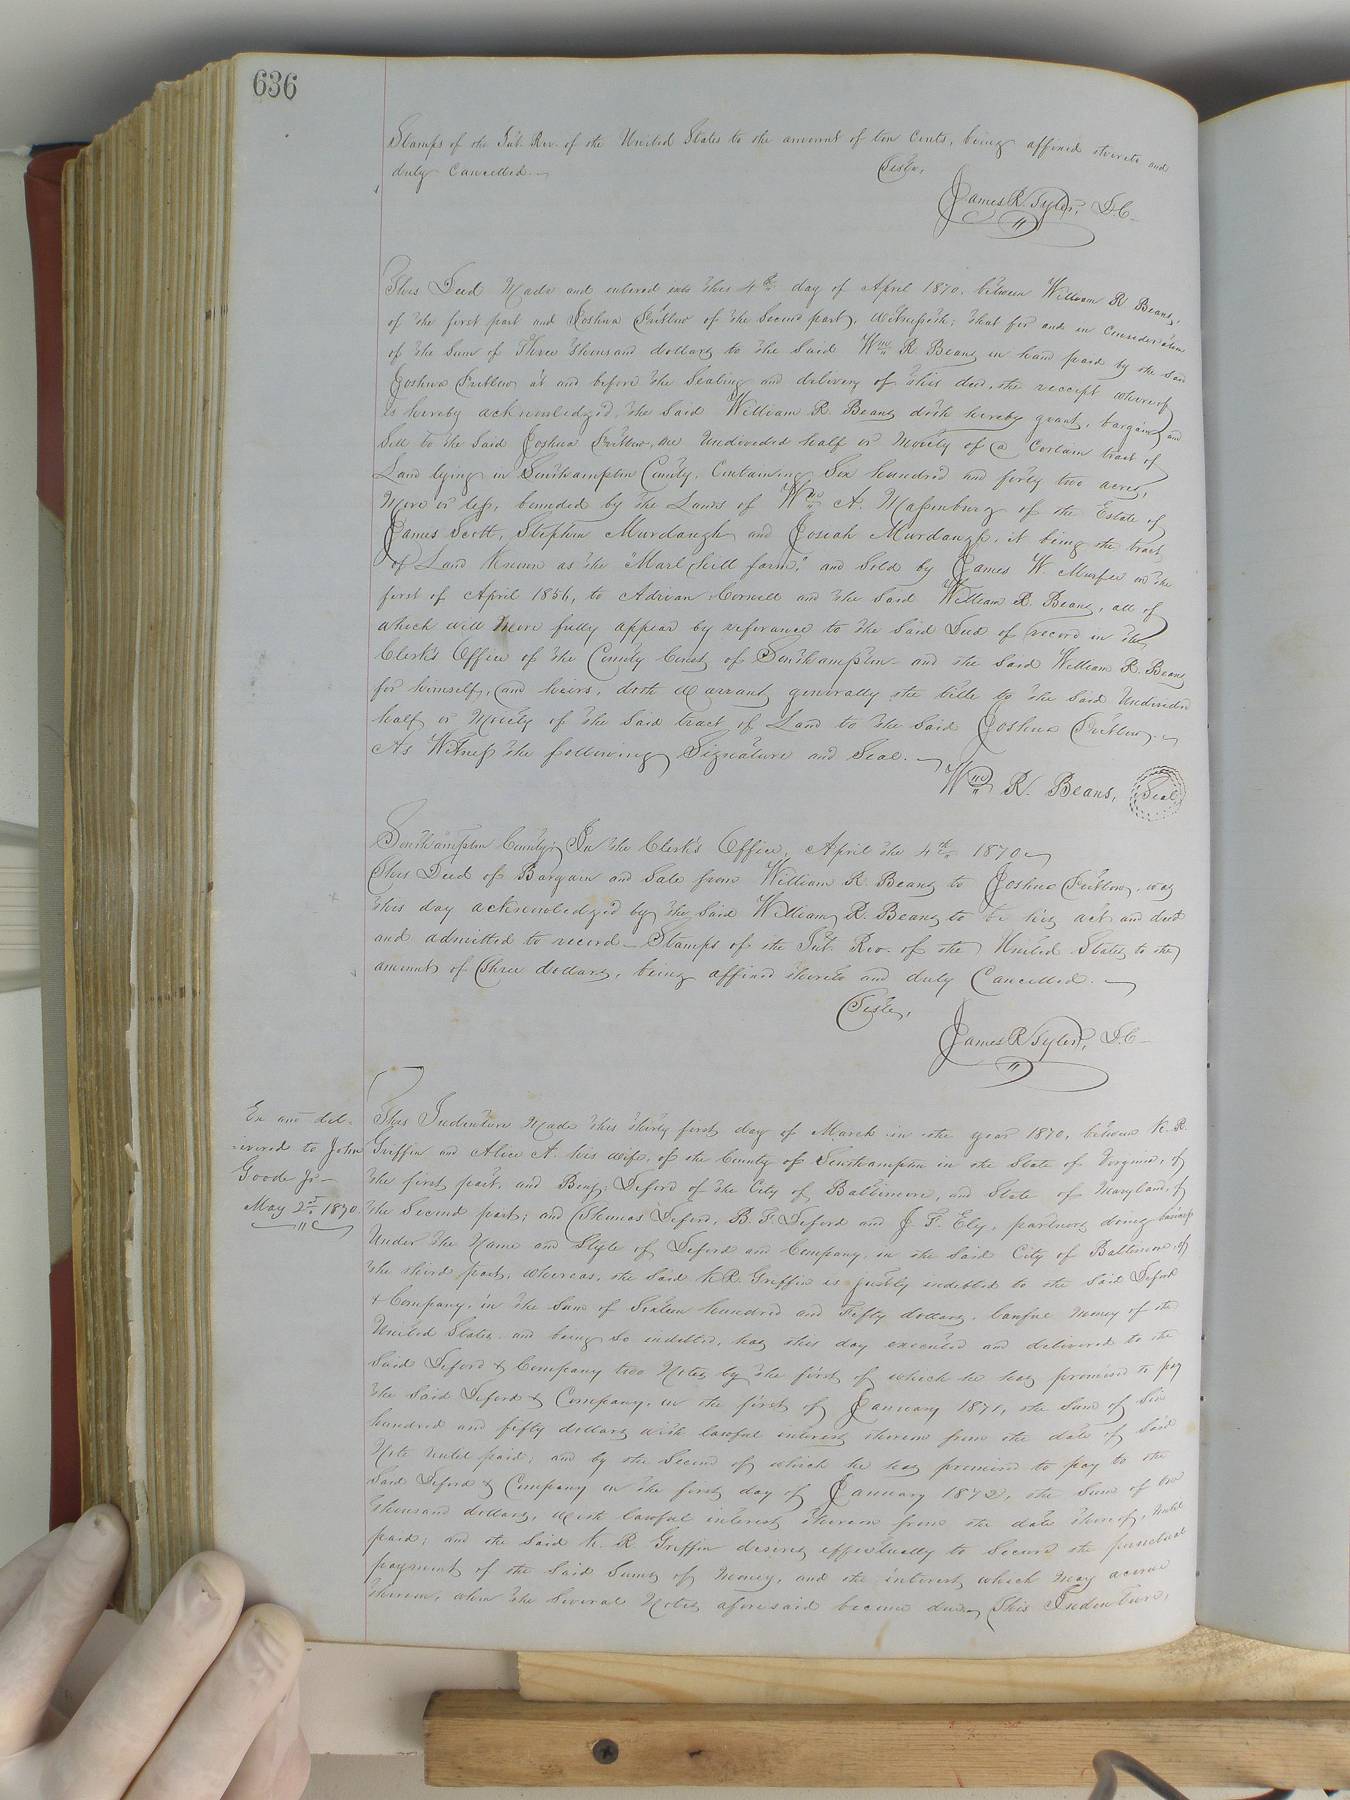 636
Stamps of the Int. Rev. of the United States to the amount of ten Cents, being affixed thereto and
duly Cancelled.
Teste,
James R. Tyler, D.C.
This Deed Made and entered into this 4th day of April 1870. between William R. Beans,
of the first part and Joshua Pretlow of the Second part, Witnesseth; that for and in Consideration
of the Sum of Three thousand dollars to the Said Wm R. Beans in hand paid by the said
Joshua Pretlow at and before the Sealing and delivery of this deed, the receipt whereof
is hereby acknowledged, the Said William R. Beans doth hereby grant, bargain and
Sell to the Said Joshua Pretlow, one Undivided half or Moiety of a Certain tract of
Land lying in Southampton County, Containing Six hundred and forty two acres,
More or less, bounded by the Lands of Wm A. Massenburg of the Estate of
James Scott, Stephen Murdaugh and Josiah Murdaugh, it being the tract
of Land Known as the "Marl hill farm," and Sold by James W. Murfee on the
first of April 1856, to Adrian Cornell and the Said William R. Beans, all of
which will More fully appear by referance to the Said Deed of record in the
Clerk's Office of the County Court of Southampton and the Said William R. Beans
for himself, and heirs, doth Warrant generally the title to the Said Undivided
half or Moiety of the Said tract of Land to the Said Joshua Pretlow.
As Witness the following Signature and Seal.
Wm R. Beans, Seal
Southampton County; In the Clerk's Office, April the 4th 1870
This Deed of Bargain and Sale from William R. Beans to Joshua Pretlow, was
this day acknowledged by the Said William R. Beans to be his act and deed
and admitted to record - Stamps of the Int. Rev. of the United States to the
amount of Three dollars, being affixed thereto and duly Cancelled.
Teste,
James R. Tyler, D.C.
Ex and del-
ivered to John
Goode Jr -
May 2nd 1870
This Indenture Made this thirty first day of March in the year 1870, between K. R.
Griffin and Alice A. his wife, of the County of Southampton in the State of Virginia, of
the first part, and Benj. Deford of the City of Baltimore, and State of Maryland, of
the Second part; and Thomas Deford, B. F. Deford and J. F. Ely, partners doing business
Under the Name and Style of Deford and Company, in the Said City of Baltimore, of
the third part, whereas, the Said K. R. Griffin is justly indebted to the Said Deford
& Company, in the Sum of Sixteen hundred and Fifty dollars, lawful Money of the
United States, and being so indebted, has this day executed and delivered to the
Said Deford & Company two Notes by the first of which he has promised to pay
the Said Deford & Company, on the first of January 1871, the Sum of Six
hundred and fifty dollars with lawful interest thereon from the date of Said
Note Until paid; and by the Second of which he has promised to pay to the
Said Deford & Company on the first day of January 1872, the Sum of One
thousand dollars, with lawful interest thereon from the date thereof, Until
paid; and the Said K. R. Griffin desires effectually to Secure the punctual
payment of the Said Sums of Money, and the interest which May accrue
thereon, when the Several Notes aforesaid become due, This Indenture,